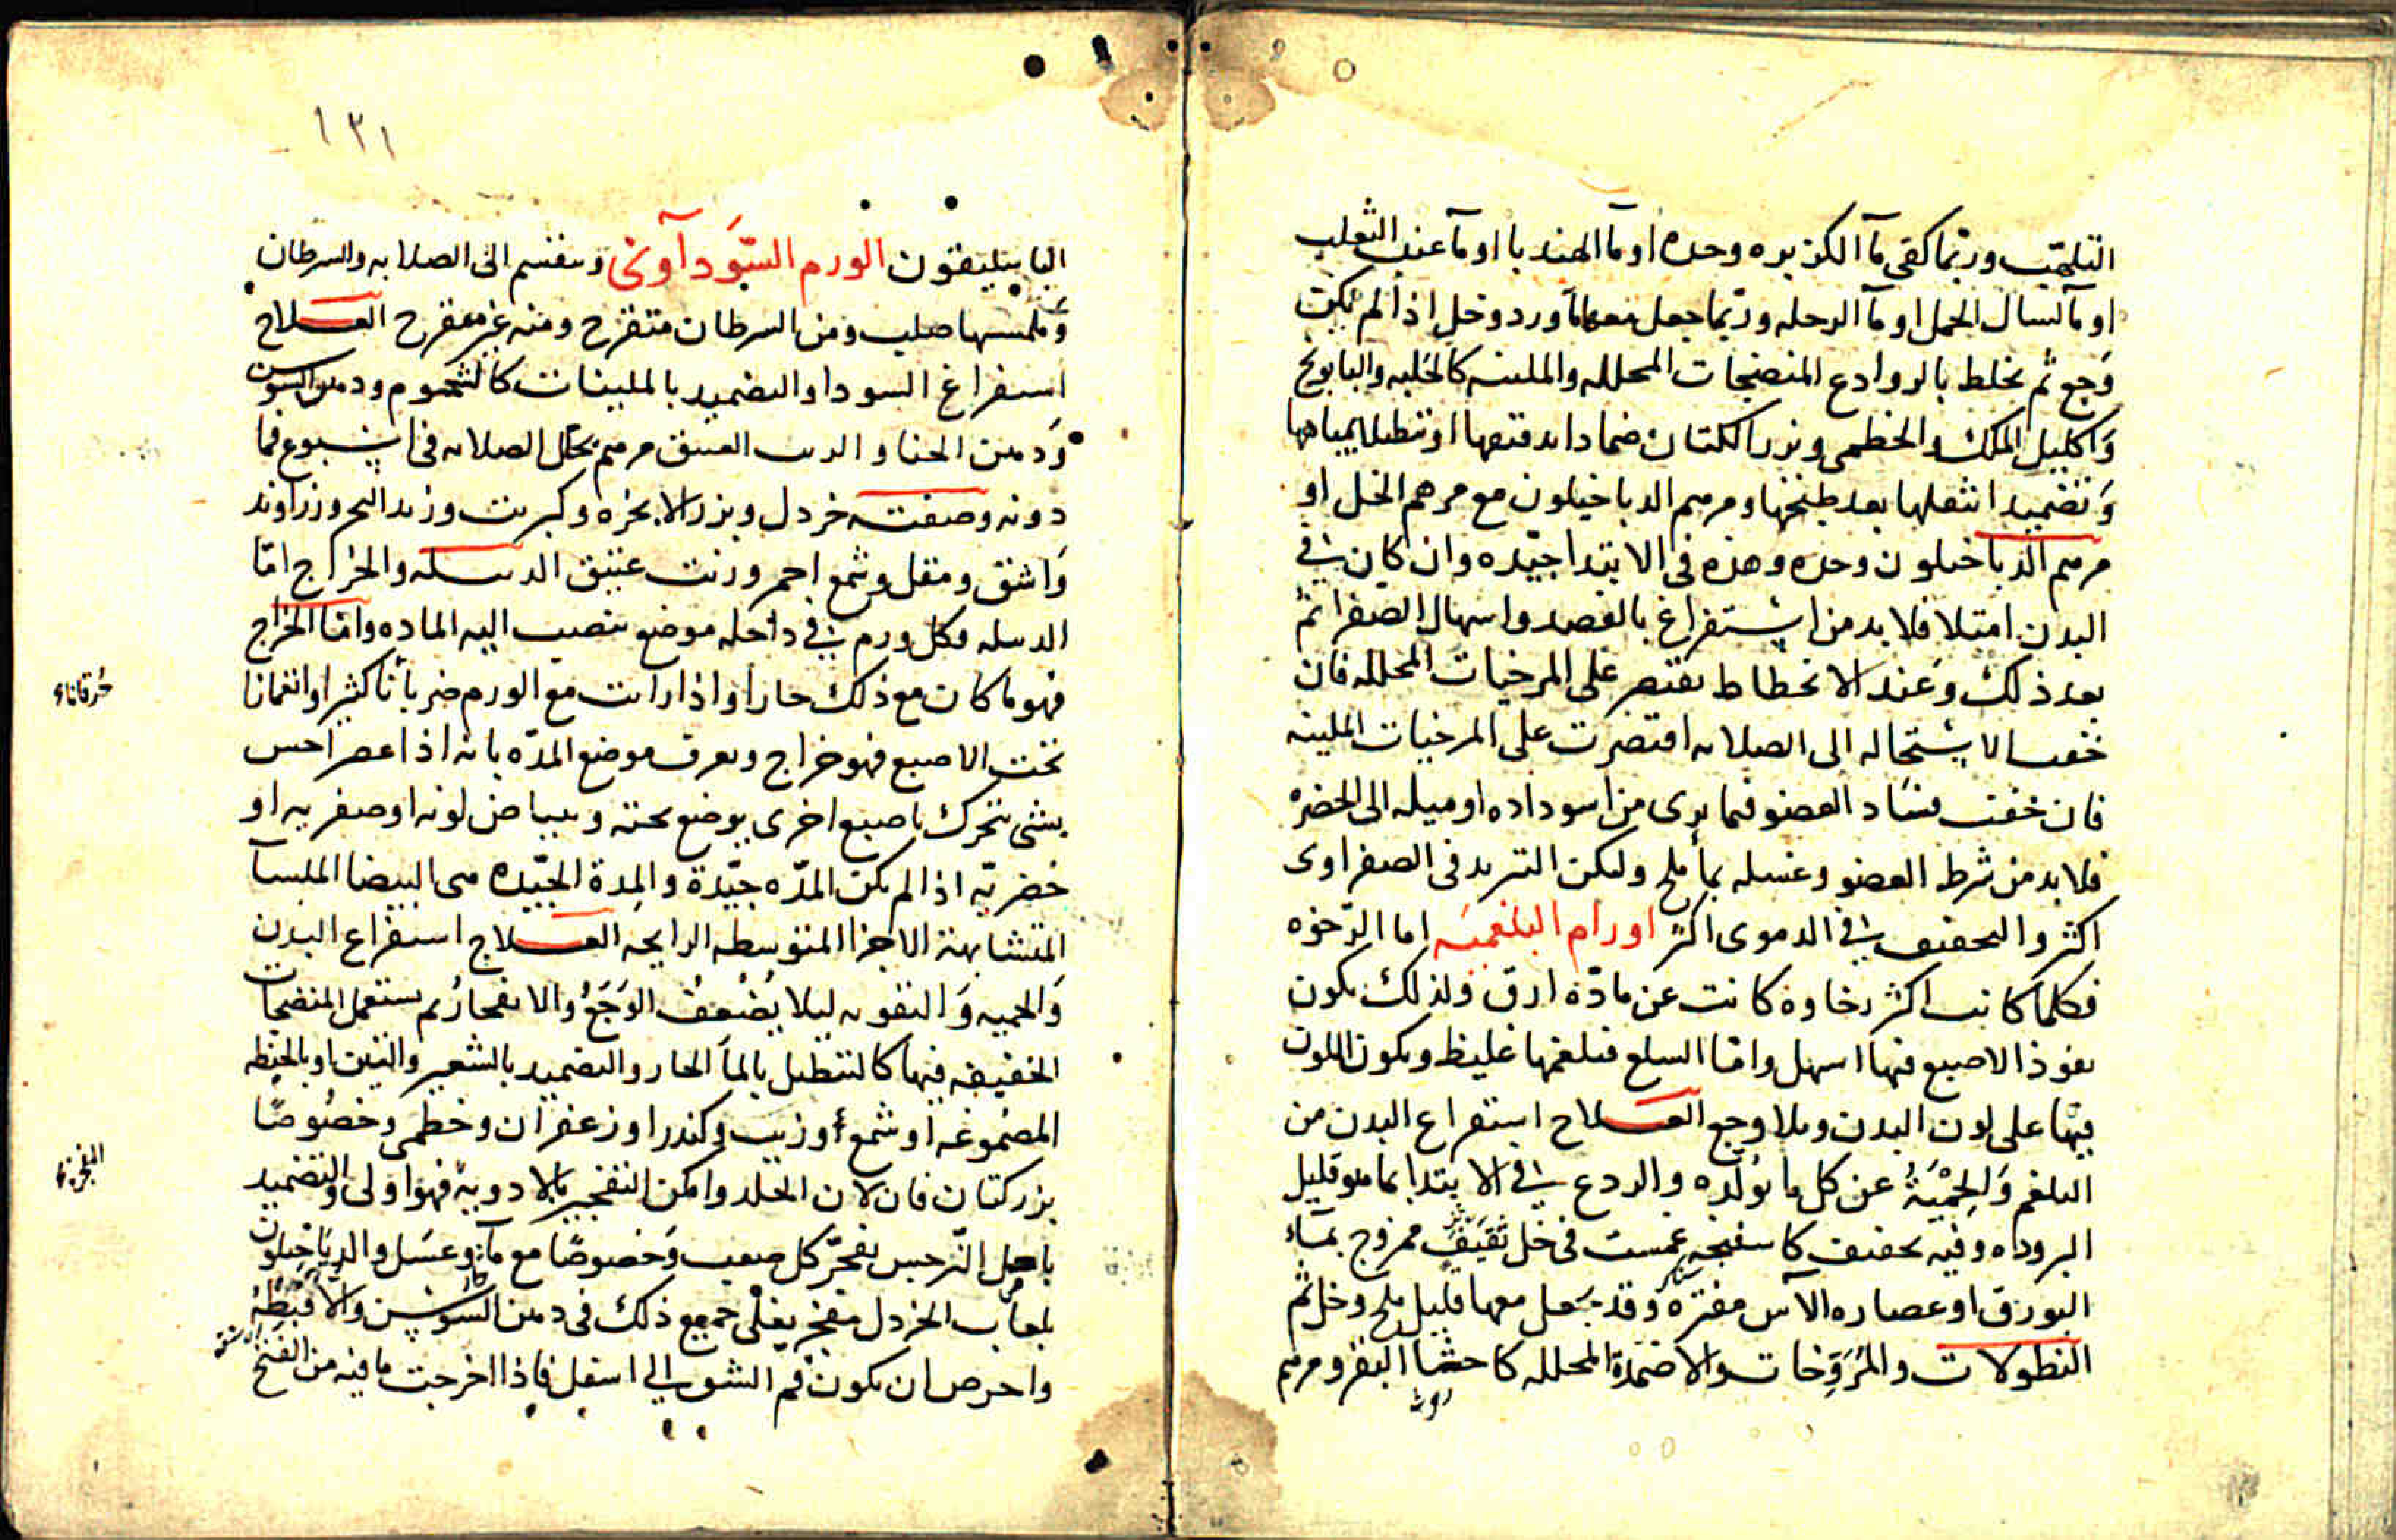 التلهّب وربّما كفى مآ الكزبره وحده او مآ الهندبا او مآ عنب الثعلب
او مآ لسال الحمل او مآ الرحله وربّما جعل معها مآورد وخل اذا لم يكن
وَجع ثم يخلط بالروادع المنضجات المحلله والملينه كالحلبه والبابونج
وَاكليل الملك والخطمى وبزر الكتان ضمادا بدقتها او تنطيلا بمياهها
وَتضميدا بثفلها بعد طبخها ومرهم الدياخيلون مع مرهم الخل او
مرهم الدياخيلون وحده وهذه فى الابتدا جيّده وان كان فى
البدن امتلا فلا بد من استفراغ بالفصد واسهال الصفرا ثمّ
بعد ذلك وَعند الانحطاط يقتصر على المرخيات المحلله فان
خفت الاستحاله الى الصلابه اقتصرت على المرخيات الملينه
فان خفت فسَاد العضو فما يرى من اسوداده او ميله الى الخضره
فلا بد من شرط العضو وغسله بمآ ملح وليكن التبريد فى الصفراوى
اكثر والتجفيف فى الدموى اكثر اورام البلغميَه اما الرّخوه
فكلما كانت اكثر رخاوة كانت عن مادّة ارق ولذلك يكون
نفوذ الاصبع فيها اسهل وامّا السلع فبلغمها غليظ ويكون اللون
فيها على لون البدن وبلا وجع العــلاج استفراغ البدن من
البلغم وَالحِمْيَةُ عن كل ما يولده والردع فى الابتدا بما هو قليل
البروده وفيه تجفيف كاسفنجه غمست فى خل ثقيف ممزوج بمآء
البورق او عصاره الآس مفتره وقد يجعل معها قليل ملح وخل ثم
النطولات والمُرَوِّخات والاضمدة المحلله كاحثا البقر ومرهم
١٣١
الباسليقون الورم السّوَدآونى وينقسم الى الصلابه والسرطان
وَملمسها صلب ومن السرطان متقرح ومنه غير متقرح العــلاج
استفراغ السودا والتضميد بالملينات كالشحوم ودهن السوسن
وَدهن الحنا والزيت العتيق مرهم يحلل الصلابه فى اسبوع فما
دونه وصفته خردل وبزر الانجره وكبريت وزبد البحر وزراوند
وَاشق ومقل وشمع احمر وزيت عتيق الدبيله والخراج امّا
الدبيله فكل ورم فى داخله موضع تنصب اليه الماده وامّا الخراج
فهو ما كان مع ذلك حارا واذا رايت مع الورم ضربانا كثيرا وانغمازا
تحت الاصبع فهو خراج ويعرف موضع المدّه بانه اذا عصر احس
بشى يتحرك باصبع اخرى يوضع تحته وببياض لونه او صفريه او
خضريّه اذا لم يكن المدّه جيّدة والمِدة الجيّده هى البيضا الملسآ
المتشابهة الاجزا المتوسطه الرايحه العــلاج استفراغ البدن
وَالحميه وَالتقويه ليلا يُضْعِفُ الوَجَعُ والانفجارُ ثم يستعمل المنضجات
الخفيفه فيها كالتنطيل بالمآ الحار والتضميد بالشعير والتين او بالحنطه
الممضوغه او شمع او زيت وكندر او زعفران وخطمى وخصُوصًا
بزر كتان فان لان الجلد وامكن التفجير بالادوية فهو اولى والتضميد
باصل النّرجس يفجّر كل صعب وَخصوصًا مع مآء وعسَل والدياخيلون
بلعاب الخردل مفجر يغلى جميع ذلك فى دهن السوسن
واحرص ان يكون فم الشق الى اسفل فاذا اخرجت ما فيه من القيح